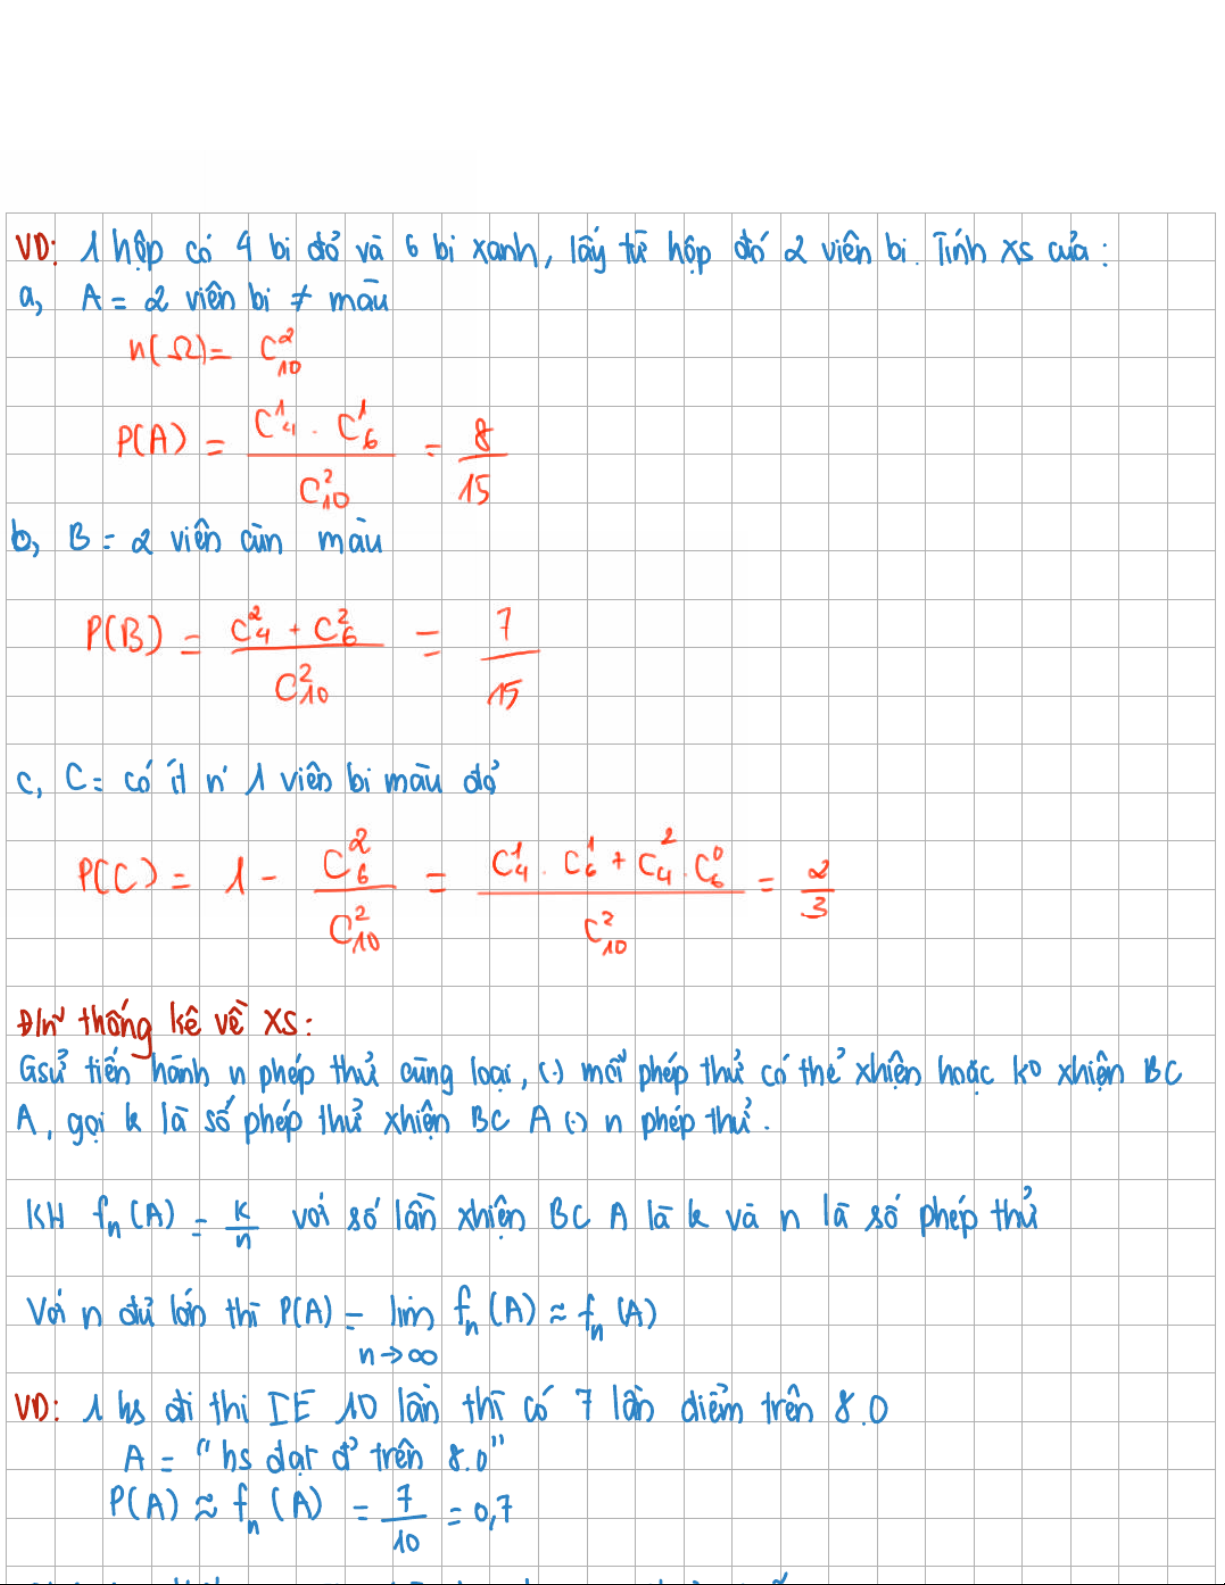 VD: 1 hộp có 4 bi đỏ và 6 bi xanh, lấy từ hộp đó 2 viên bi. Tính xs của:
a, A = 2 viên bi ≠ màu
n(Ω) = C²₁₀
P(A) = (C¹₄ . C¹₆) / C²₁₀ = 8/15
b, B = 2 viên cùn màu
P(B) = (C²₄ + C²₆) / C²₁₀ = 7/15
c, C = có ít n' 1 viên bi màu đỏ
P(C) = 1 - C²₆ / C²₁₀ = (C¹₄ . C¹₆ + C²₄ . C⁰₆) / C²₁₀ = 2/3
Đ/n~ thống kê về XS:
Gsử tiến hành n phép thử cùng loại, (.) mỗi phép thử có thể xhiện hoặc ko xhiện BC
A, gọi k là số phép thử xhiện BC A (.) n phép thử.
KH fₙ(A) = k/n với số lần xhiện BC A là k và n là số phép thử
Với n đủ lớn thì P(A) = lim fₙ(A) ≈ fₙ(A)
n→∞
VD: 1 hs đi thi IE 10 lần thì có 7 lần điểm trên 8.0
A = "hs đạt đ' trên 8.0"
P(A) ≈ fₙ(A) = 7/10 = 0,7